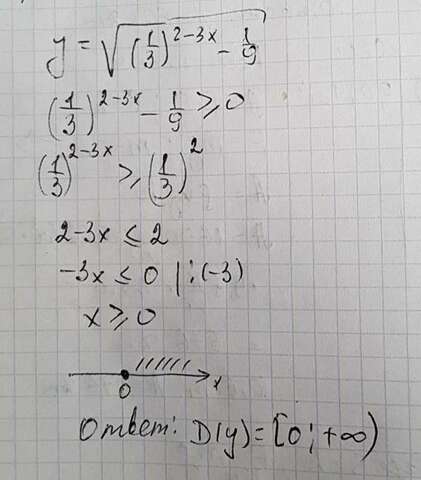 y = √((1/3)^(2-3x) - 1/9)
(1/3)^(2-3x) - 1/9 ⩾ 0
(1/3)^(2-3x) ⩾ (1/3)^2
2-3x ≤ 2
-3x ≤ 0 | :(-3)
x ⩾ 0
0 x
Ответ: D(y) = [0; +∞)